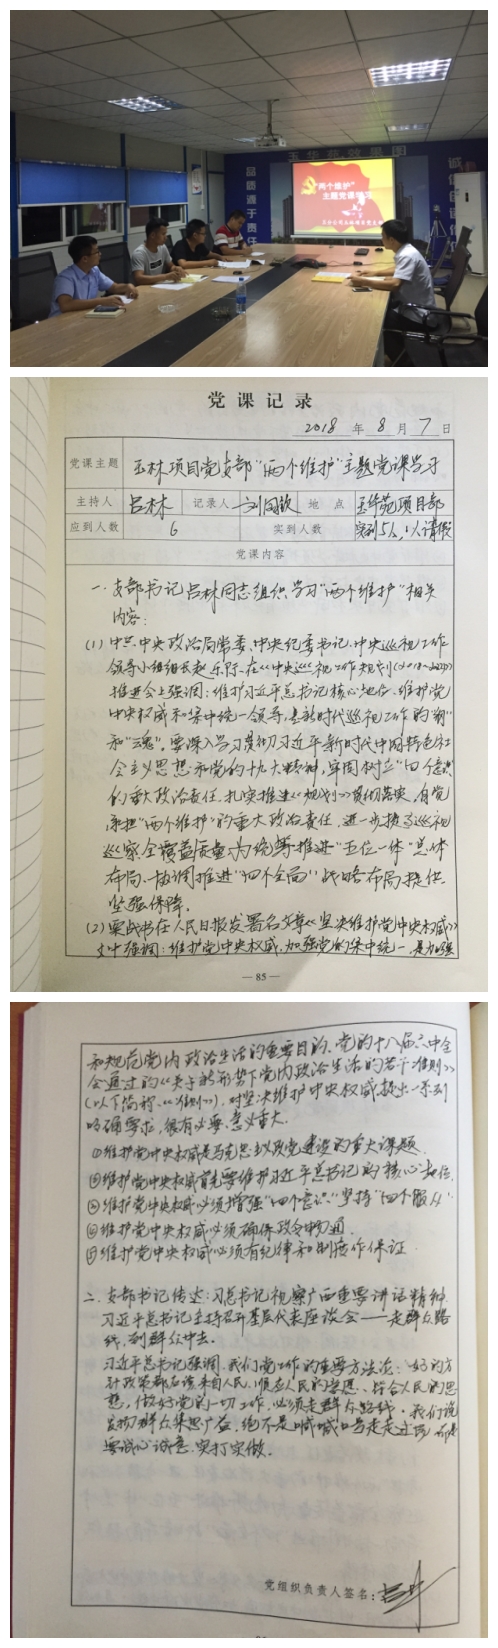 五华苑效果图
品质源于责任
诚信
"两个维护"
主题党课学习
党课记录
2018年8月7日
党课主题 玉林项目党支部"两个维护"主题党课学习
主持人 吕林 记录人 刘同钦 地点 玉华苑项目部
应到人数 6 实到人数 实到5人,1人请假
党课内容
一.支部书记吕林同志组织学习"两个维护"相关
内容:
(1)中共中央政治局常委、中央纪委书记、中央巡视工作
领导小组组长赵乐际,在《中央巡视工作规划(2018-2022)》
推进会上强调:维护习近平总书记核心地位、维护党
中央权威和集中统一领导,是新时代巡视工作的"纲"
和"魂"。要深入学习贯彻习近平新时代中国特色社
会主义思想和党的十九大精神,牢固树立"四个意识"
的重大政治责任,扎实推进《规划》贯彻落实,自觉
承担"两个维护"的重大政治责任,进一步提高巡视
巡察全覆盖质量,为统筹推进"五位一体"总体
布局、协调推进"四个全面"战略布局提供
坚强保障。
(2)栗战书在人民日报发署名文章《坚决维护党中央权威》
文中强调:维护党中央权威,加强党的集中统一,是加强
— 85 —
和规范党内政治生活的重要目的、党的十八届六中全
会通过的《关于新形势下党内政治生活的若干准则》
(以下简称《准则》),对坚决维护中央权威提出一系列
明确要求,很有必要、意义重大.
①维护党中央权威是马克思主义政党建设的重大课题.
②维护党中央权威首先要维护习近平总书记的核心地位.
③维护党中央权威必须增强"四个意识"坚持"四个服从"
④维护党中央权威必须确保政令畅通.
⑤维护党中央权威必须有纪律和制度作保证.
二.支部书记传达:习总书记视察广西重要讲话精神.
习近平总书记主持召开基层代表座谈会——走群众路
线,到群众中去。
习近平总书记强调,我们党工作的重要方法论:好的方
针政策都应该来自人民、顺应人民的意愿、符合人民的思
想,做好党的一切工作,必须走群众路线。我们说
发扬群众集思广益,绝不是喊喊口号走走过场,而是
要诚心诚意、实打实做。
党组织负责人签名:吕林